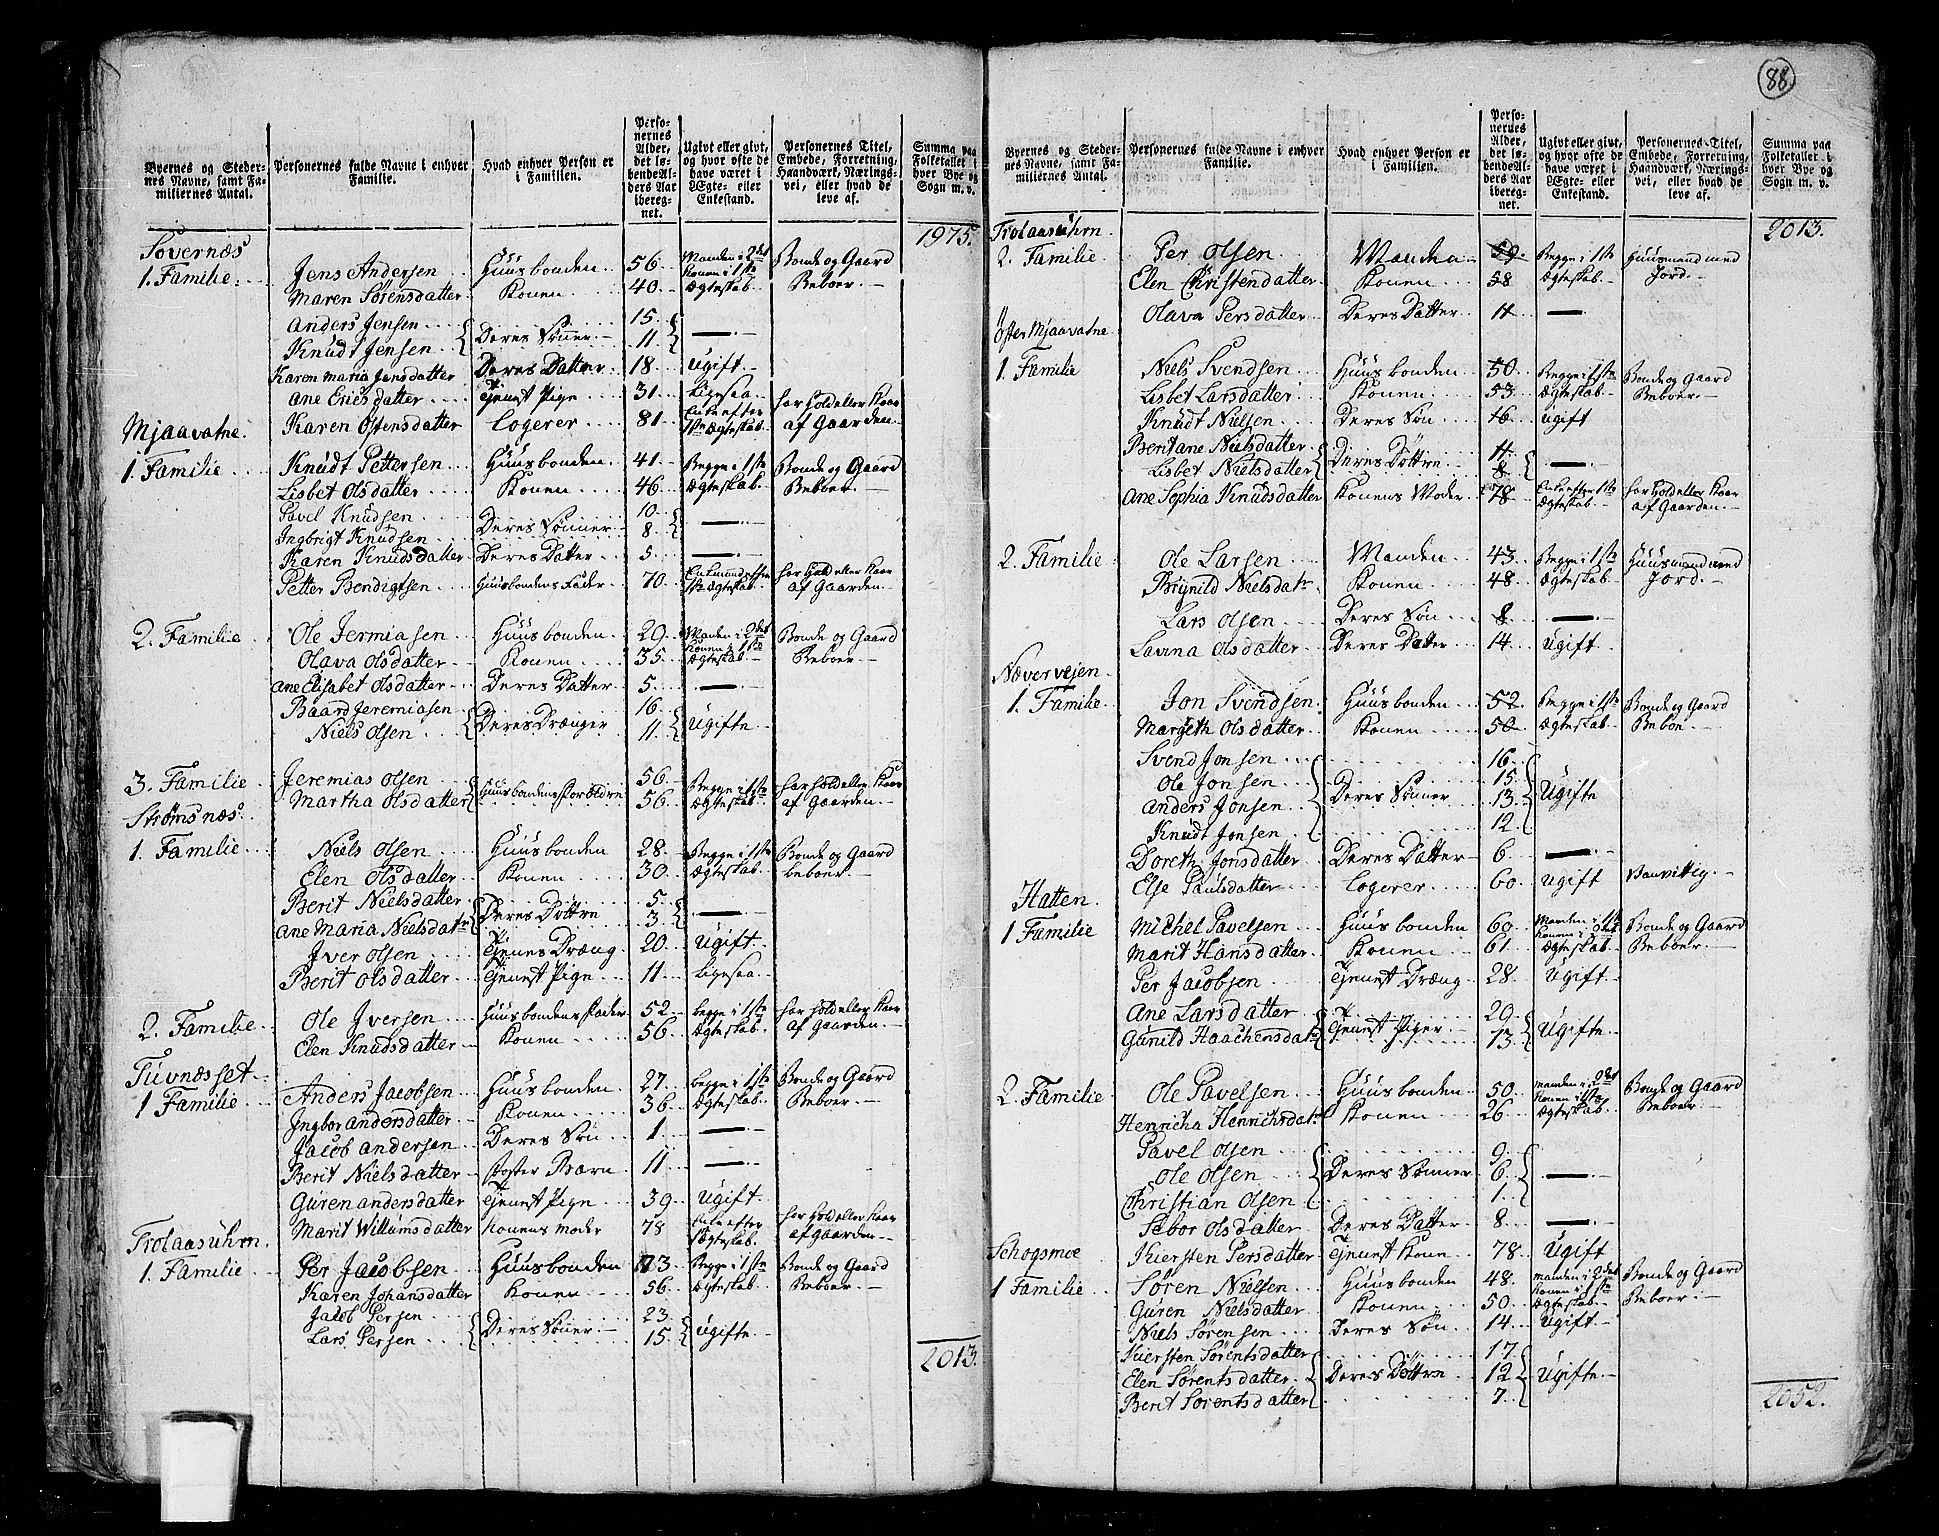 Byernes og Stedernes Navne, samt Familiernes Antal.
Personernes fulde Navne i enhver Familie.
Hvad enhver Person er i Familien.
Personernes Alder, det løbendeAlders Aar iberegnet.
Ugivt eller givt, og hvor ofte de have været i Ægte- eller Enkestand.
Personernes Titel, Embede, Forretning, Haandværk, Næringsvei, eller hvad de leve af.
Summa paa Folketallet i hver Bye og Sogn m. v.
1975.
Sovernæs
1. Familie. Jens Andersen Huusbonden 56 Manden i 2det Konen i 1ste Bonde og Gaard
Maren Sørensdatter Konen 40 Ægteskab Beboer
Anders Jensen 15
Knudt Jensen Deres Sønner 11
Karen Maria Jensdatter Deres Datter 18 Ugift
Ane Ericsdatter Tjenest Pige 31 Ligesaa
Mjaavatne Karen Ostensdatter Logerer 81 Enke efter 1ste Ægteskab har Hold eller Kaar af Gaarden
1. Familie Knudt Pettersen Huusbonden 41 Begge i 1ste Bonde og Gaard
Lisbet Olsdatter Konen 46 Ægteskab Beboer
Pavel Knudsen 10
Ingbrigt Knudsen Deres Sønner 8
Karen Knudsdatter Deres Datter 5
Petter Bendigtsen Huusbondens Fader 70 Enkemand efter 1ste Ægteskab har Hold eller Kaar af Gaarden
2. Familie Ole Jermiasen Huusbonden 29 Manden i 2det Konen i 1ste Bonde og Gaard
Olava Olsdatter Konen 35 Ægteskab Beboer
Ane Elisabet Olsdatter Deres Datter 5
Baard Jeremiasen 16
Niels Olsen Deres Drænger 11 Ugifte
3. Familie Jeremias Olsen 56 Begge i 1ste har Hold eller Kaar
Martha Olsdatter Huusbondens Forældre 56 Ægteskab af Gaarden
Strømsnæs
1. Familie Niels Olsen Huusbonden 28 Begge i 1ste Bonde og Gaard
Elen Olsdatter Konen 30 Ægteskab beboer
Berit Nielsdatter 5
Ane Maria Nielsdatr Deres Døttre 3
Iver Olsen Tjenes Dræng 20 Ugift
Berit Olsdatter Tjenest Pige 11 Ligesaa
2. Familie Ole Iversen Huusbondens Fader 52 begge i 1ste har Hold eller Kaar
Elen Knudsdatter Konen 56 Ægteskab af Gaarden
Tuvnæsset
1 Familie Anders Jacobsen Huusbonden 27 begge i 1ste Bonde og Gaard
Ingbor Andersdatter Konen 36 Ægteskab Beboer
Jacob Andersen Deres Søn 1
Berit Nielsdatter Foster Barn 11
Guren Andersdatter Tjenest Pige 39 Ugift
Marit Willumsdatter Konens Moder 78 Enke efter 1 Ægteskab har Hold eller Kaar af Gaarden
Trolaasuhrn
1. Familie Per Jacobsen Huusbonden 73 Begge i 1ste Bonde og Gaard
Karen Johansdatter Konen 56 Ægteskab Beboer
Jacob Persen 23
Lars Persen Deres Sønner 15 Ugifte
2013.
88
Byernes og Stedernes Navne, samt Familiernes Antal.
Personernes fulde Navne i enhver Familie.
Hvad enhver Person er i Familien.
Personernes Alder, det løbendeAlders Aar iberegnet.
Ugivt eller givt, og hvor ofte de have været i Ægte- eller Enkestand.
Personernes Titel, Embede, Forretning, Haandværk, Næringsvei, eller hvad de leve af.
Summa paa Folketallet i hver Bye og Sogn m. v.
Trolaasuhrn 2013.
2. Familie Per Olsen Manden 59 Begge i 1ste Huusmand med
Elen Christendatter Konen 58 Ægteskab Jord
Olava Persdatter Deres Datter 11
Öster Mjaavatne
1. Familie Niels Svendsen Huusbonden 50 Begge i 1ste Bonde og Gaard
Lisbet Larsdatter Konen 53 Ægteskab Beboer
Knudt Nielsen Deres Søn 16 Ugift
Beritane Nielsdatter 11
Lisbet Nielsdatter Deres Döttre 8
Ane Sophia Knudsdatter Konens Moder 78 Enke efter 1ste Ægteskab har Hold eller Kaar af Gaarden
2. Familie Ole Larsen Manden 43 Begge i 1ste Huusmand med
Brynild Nielsdatr Konen 48 Ægteskab Jord
Lars Olsen Deres Søn 8
Lavina Olsdatter Deres Datter 14 Ugift
Nævervejen
1. Familie Jon Svendsen Huusbonden 52 Begge i 1ste Bonde og Gaard
Margeth Olsdatter Konen 50 Ægteskab Beboe
Svend Jonsen 16
Ole Jonsen 15
Anders Jonsen Deres Sønner 13 Ugifte
Knudt Jonsen 12
Doreth Jonsdatter Deres Datter 6
Else Paulsdatter Logerer 60 Ugift Vanvittig
Hatten
1 Familie Michel Pavelsen Huusbonden 60 Manden i 1ste Konen i 2det Bonde og Gaard
Marit Hansdatter Konen 61 Ægteskab Beboer
Per Jacobsen Tjenest Dræng 28 Ugift
Ane Larsdatter 29
Gunild Haachensdatr Tjenest Piger 13 Ugifte
2. Familie Ole Pavelsen Huusbonden 50 Manden i 2det Konen i 1ste Bonde og Gaard
Henricha Henrichsdatr Konen 26 Ægteskab Beboer
Pavel Olsen 9
Ole Olsen Deres Sønner 6
Christian Olsen 1
Sebor Olsdatter Deres Datter 8
Schogsmoe Kiersten Persdatter Tjenest Kone 78 Ugift
1 Familie Søren Nielsen Huusbonden 48 Manden i 2det Konen i 1ste Bonde og Gaard
Guren Nielsdatter Konen 50 Ægteskab Beboer
Niels Sørensen Deres Søn 14 Ugift
Kiersten Sørentsdatter 17
Elen Sørentsdatter Deres Döttre 12 Ugifte
Berit Sørentsdatter 7
2052.